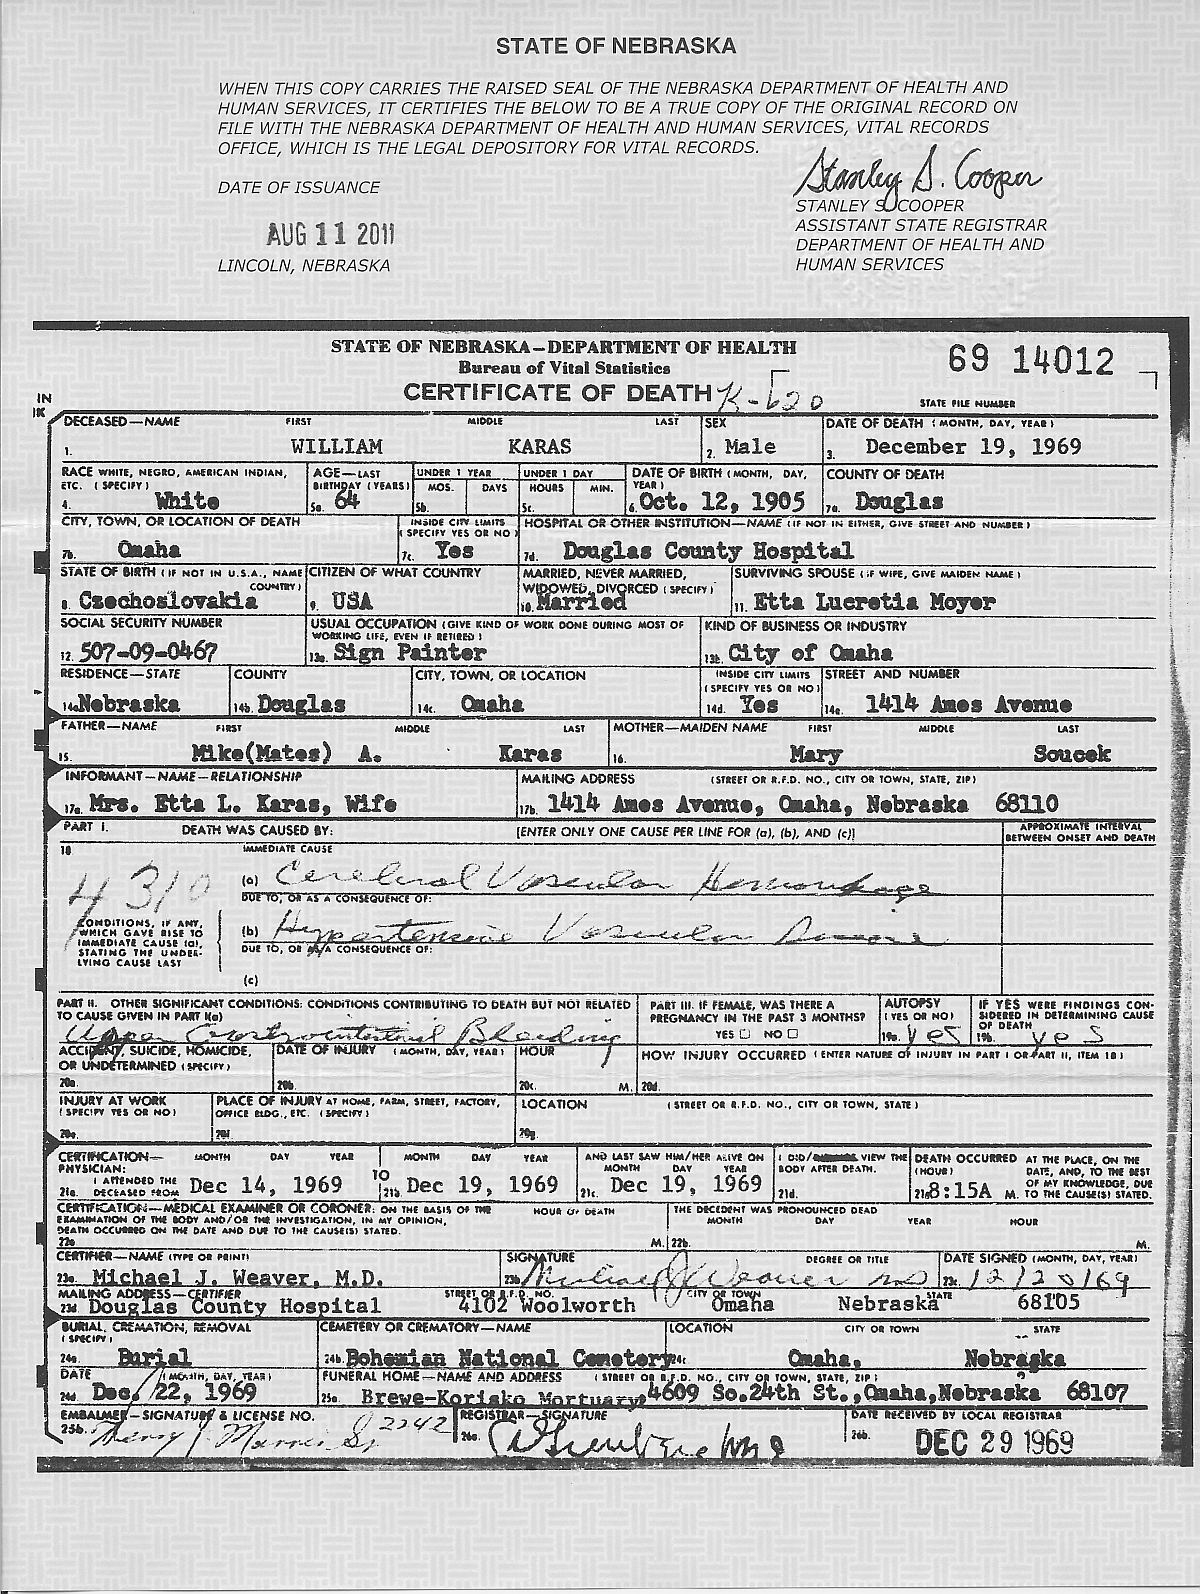 STATE OF NEBRASKA
WHEN THIS COPY CARRIES THE RAISED SEAL OF THE NEBRASKA DEPARTMENT OF HEALTH AND
HUMAN SERVICES, IT CERTIFIES THE BELOW TO BE A TRUE COPY OF THE ORIGINAL RECORD ON
FILE WITH THE NEBRASKA DEPARTMENT OF HEALTH AND HUMAN SERVICES, VITAL RECORDS
OFFICE, WHICH IS THE LEGAL DEPOSITORY FOR VITAL RECORDS.
Stanley S. Cooper
DATE OF ISSUANCE
STANLEY S. COOPER
ASSISTANT STATE REGISTRAR
AUG 11 2011
DEPARTMENT OF HEALTH AND
LINCOLN, NEBRASKA
HUMAN SERVICES
STATE OF NEBRASKA—DEPARTMENT OF HEALTH
Bureau of Vital Statistics
69 14012
CERTIFICATE OF DEATH K-620
STATE FILE NUMBER
DECEASED—NAME FIRST MIDDLE LAST SEX DATE OF DEATH (MONTH, DAY, YEAR)
1. WILLIAM KARAS 2. Male 3. December 19, 1969
RACE WHITE, NEGRO, AMERICAN INDIAN, AGE—LAST UNDER 1 YEAR UNDER 1 DAY DATE OF BIRTH (MONTH, DAY, COUNTY OF DEATH
ETC. (SPECIFY) BIRTHDAY (YEARS) MOS. DAYS HOURS MIN. YEAR)
4. White 5a. 64 5b. 5c. 6. Oct. 12, 1905 7a. Douglas
CITY, TOWN, OR LOCATION OF DEATH INSIDE CITY LIMITS HOSPITAL OR OTHER INSTITUTION—NAME (IF NOT IN EITHER, GIVE STREET AND NUMBER)
(SPECIFY YES OR NO)
7b. Omaha 7c. Yes 7d. Douglas County Hospital
STATE OF BIRTH (IF NOT IN U.S.A., NAME CITIZEN OF WHAT COUNTRY MARRIED, NEVER MARRIED, SURVIVING SPOUSE (IF WIFE, GIVE MAIDEN NAME)
COUNTRY) WIDOWED, DIVORCED (SPECIFY)
8. Czechoslovakia 9. USA 10. Married 11. Etta Lucretia Moyer
SOCIAL SECURITY NUMBER USUAL OCCUPATION (GIVE KIND OF WORK DONE DURING MOST OF KIND OF BUSINESS OR INDUSTRY
WORKING LIFE, EVEN IF RETIRED)
12. 507-09-0467 13a. Sign Painter 13b. City of Omaha
RESIDENCE—STATE COUNTY CITY, TOWN, OR LOCATION INSIDE CITY LIMITS STREET AND NUMBER
(SPECIFY YES OR NO)
14a. Nebraska 14b. Douglas 14c. Omaha 14d. Yes 14e. 1414 Ames Avenue
FATHER—NAME FIRST MIDDLE LAST MOTHER—MAIDEN NAME FIRST MIDDLE LAST
15. Mike(Mates) A. Karas 16. Mary Soucek
INFORMANT—NAME—RELATIONSHIP MAILING ADDRESS (STREET OR R.F.D. NO., CITY OR TOWN, STATE, ZIP)
17a. Mrs. Etta L. Karas, Wife 17b. 1414 Ames Avenue, Omaha, Nebraska 68110
PART I. DEATH WAS CAUSED BY: [ENTER ONLY ONE CAUSE PER LINE FOR (a), (b), AND (c)] APPROXIMATE INTERVAL
BETWEEN ONSET AND DEATH
18 IMMEDIATE CAUSE
4310 (a) Cerebral Vascular Hemorrhage
DUE TO, OR AS A CONSEQUENCE OF:
CONDITIONS, IF ANY,
WHICH GAVE RISE TO
IMMEDIATE CAUSE (a),
STATING THE UNDER-
LYING CAUSE LAST
(b) Hypertensive Vascular Disease
DUE TO, OR AS A CONSEQUENCE OF:
(c)
PART II. OTHER SIGNIFICANT CONDITIONS: CONDITIONS CONTRIBUTING TO DEATH BUT NOT RELATED PART III. IF FEMALE, WAS THERE A AUTOPSY IF YES WERE FINDINGS CON-
TO CAUSE GIVEN IN PART I(a) PREGNANCY IN THE PAST 3 MONTHS? (YES OR NO) SIDERED IN DETERMINING CAUSE
OF DEATH
Upper Gastrointestinal Bleeding YES NO 19a. Yes 19b. yes
ACCIDENT, SUICIDE, HOMICIDE, DATE OF INJURY (MONTH, DAY, YEAR) HOUR HOW INJURY OCCURRED (ENTER NATURE OF INJURY IN PART I OR PART II, ITEM 18)
OR UNDETERMINED (SPECIFY)
20a. 20b. 20c. M. 20d.
INJURY AT WORK PLACE OF INJURY AT HOME, FARM, STREET, FACTORY, LOCATION (STREET OR R.F.D. NO., CITY OR TOWN, STATE)
(SPECIFY YES OR NO) OFFICE BLDG., ETC. (SPECIFY)
20e. 20f. 20g.
CERTIFICATION— MONTH DAY YEAR MONTH DAY YEAR AND LAST SAW HIM/HER ALIVE ON I DID/ VIEW THE DEATH OCCURRED AT THE PLACE, ON THE
PHYSICIAN: TO MONTH DAY YEAR BODY AFTER DEATH. (HOUR) DATE, AND, TO THE BEST
I ATTENDED THE OF MY KNOWLEDGE, DUE
21a. DECEASED FROM Dec 14, 1969 21b. Dec 19, 1969 21c. Dec 19, 1969 21d. 21e. 8:15A M. TO THE CAUSE(S) STATED.
CERTIFICATION—MEDICAL EXAMINER OR CORONER: ON THE BASIS OF THE HOUR OF DEATH THE DECEDENT WAS PRONOUNCED DEAD
EXAMINATION OF THE BODY AND/OR THE INVESTIGATION, IN MY OPINION, MONTH DAY YEAR HOUR
DEATH OCCURRED ON THE DATE AND DUE TO THE CAUSE(S) STATED.
22a. M. 22b. M.
CERTIFIER—NAME (TYPE OR PRINT) SIGNATURE DEGREE OR TITLE DATE SIGNED (MONTH, DAY, YEAR)
23a. Michael J. Weaver, M.D. 23b. Michael J Weaver MD 23c. 12/20/69
MAILING ADDRESS—CERTIFIER STREET OR R.F.D. NO. CITY OR TOWN STATE
23d. Douglas County Hospital 4102 Woolworth Omaha Nebraska 68105
BURIAL, CREMATION, REMOVAL CEMETERY OR CREMATORY—NAME LOCATION CITY OR TOWN STATE
(SPECIFY)
24a. Burial 24b. Bohemian National Cemetery 24c. Omaha, Nebraska
DATE (MONTH, DAY, YEAR) FUNERAL HOME—NAME AND ADDRESS (STREET OR R.F.D. NO., CITY OR TOWN, STATE, ZIP)
24d. Dec. 22, 1969 25a. Brewe-Korisko Mortuary, 4609 So.24th St.,Omaha,Nebraska 68107
EMBALMER—SIGNATURE & LICENSE NO. REGISTRAR—SIGNATURE DATE RECEIVED BY LOCAL REGISTRAR
25b. 2242 26a. 26b. DEC 29 1969